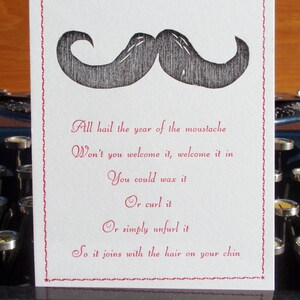 All hail the year of the moustache
Won't you welcome it, welcome it in
You could wax it
Or curl it
Or simply unfurl it
So it joins with the hair on your chin